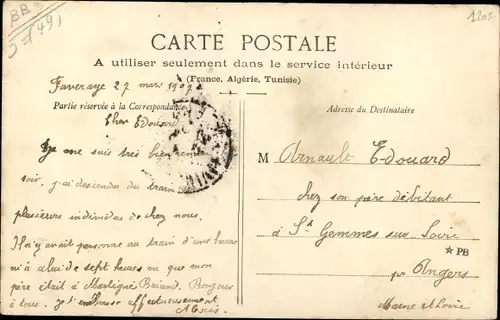 BB
1907
CARTE POSTALE
A utiliser seulement dans le service intérieur
(France, Algérie, Tunisie)
Faveraye 27 mars 190
Partie réservée à la Correspondance
Adresse du Destinataire
Cher Edouard
Je me suis très bien
soir, j'ai descendu du train
plusieurs individus de chez nous.
Il n'y avait personne au train d'une heure
ni à celui de sept heures vu que mon
père était à Martigné Briand. Bonjour
à tous. Je t'embrasse affectueusement
M Arnault Edouard
chez son père débitant
à Ste Gemmes sur Loire
PB
par Angers
Maine et Loire